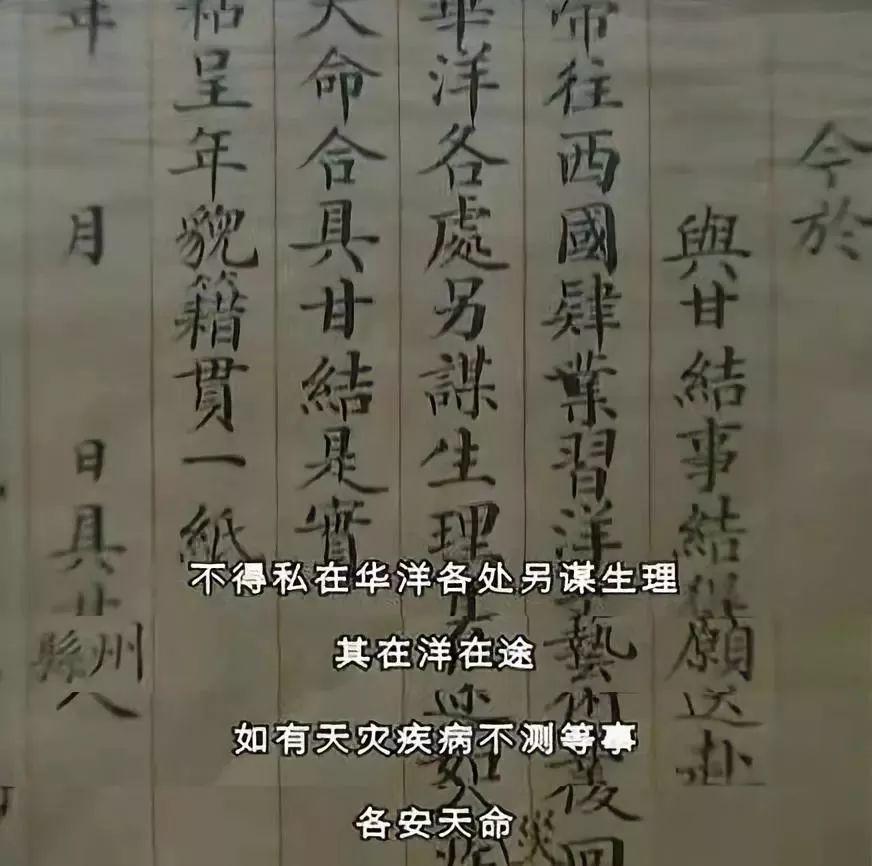 今於
與甘結事結得願送赴
往西國肄業習洋藝術後回
華洋各處另謀生理
天命合具甘結是實
粘呈年貌籍貫一紙
年 月 日具甘
縣州人
不得私在华洋各处另谋生理
其在洋在途
如有天灾疾病不测等事
各安天命